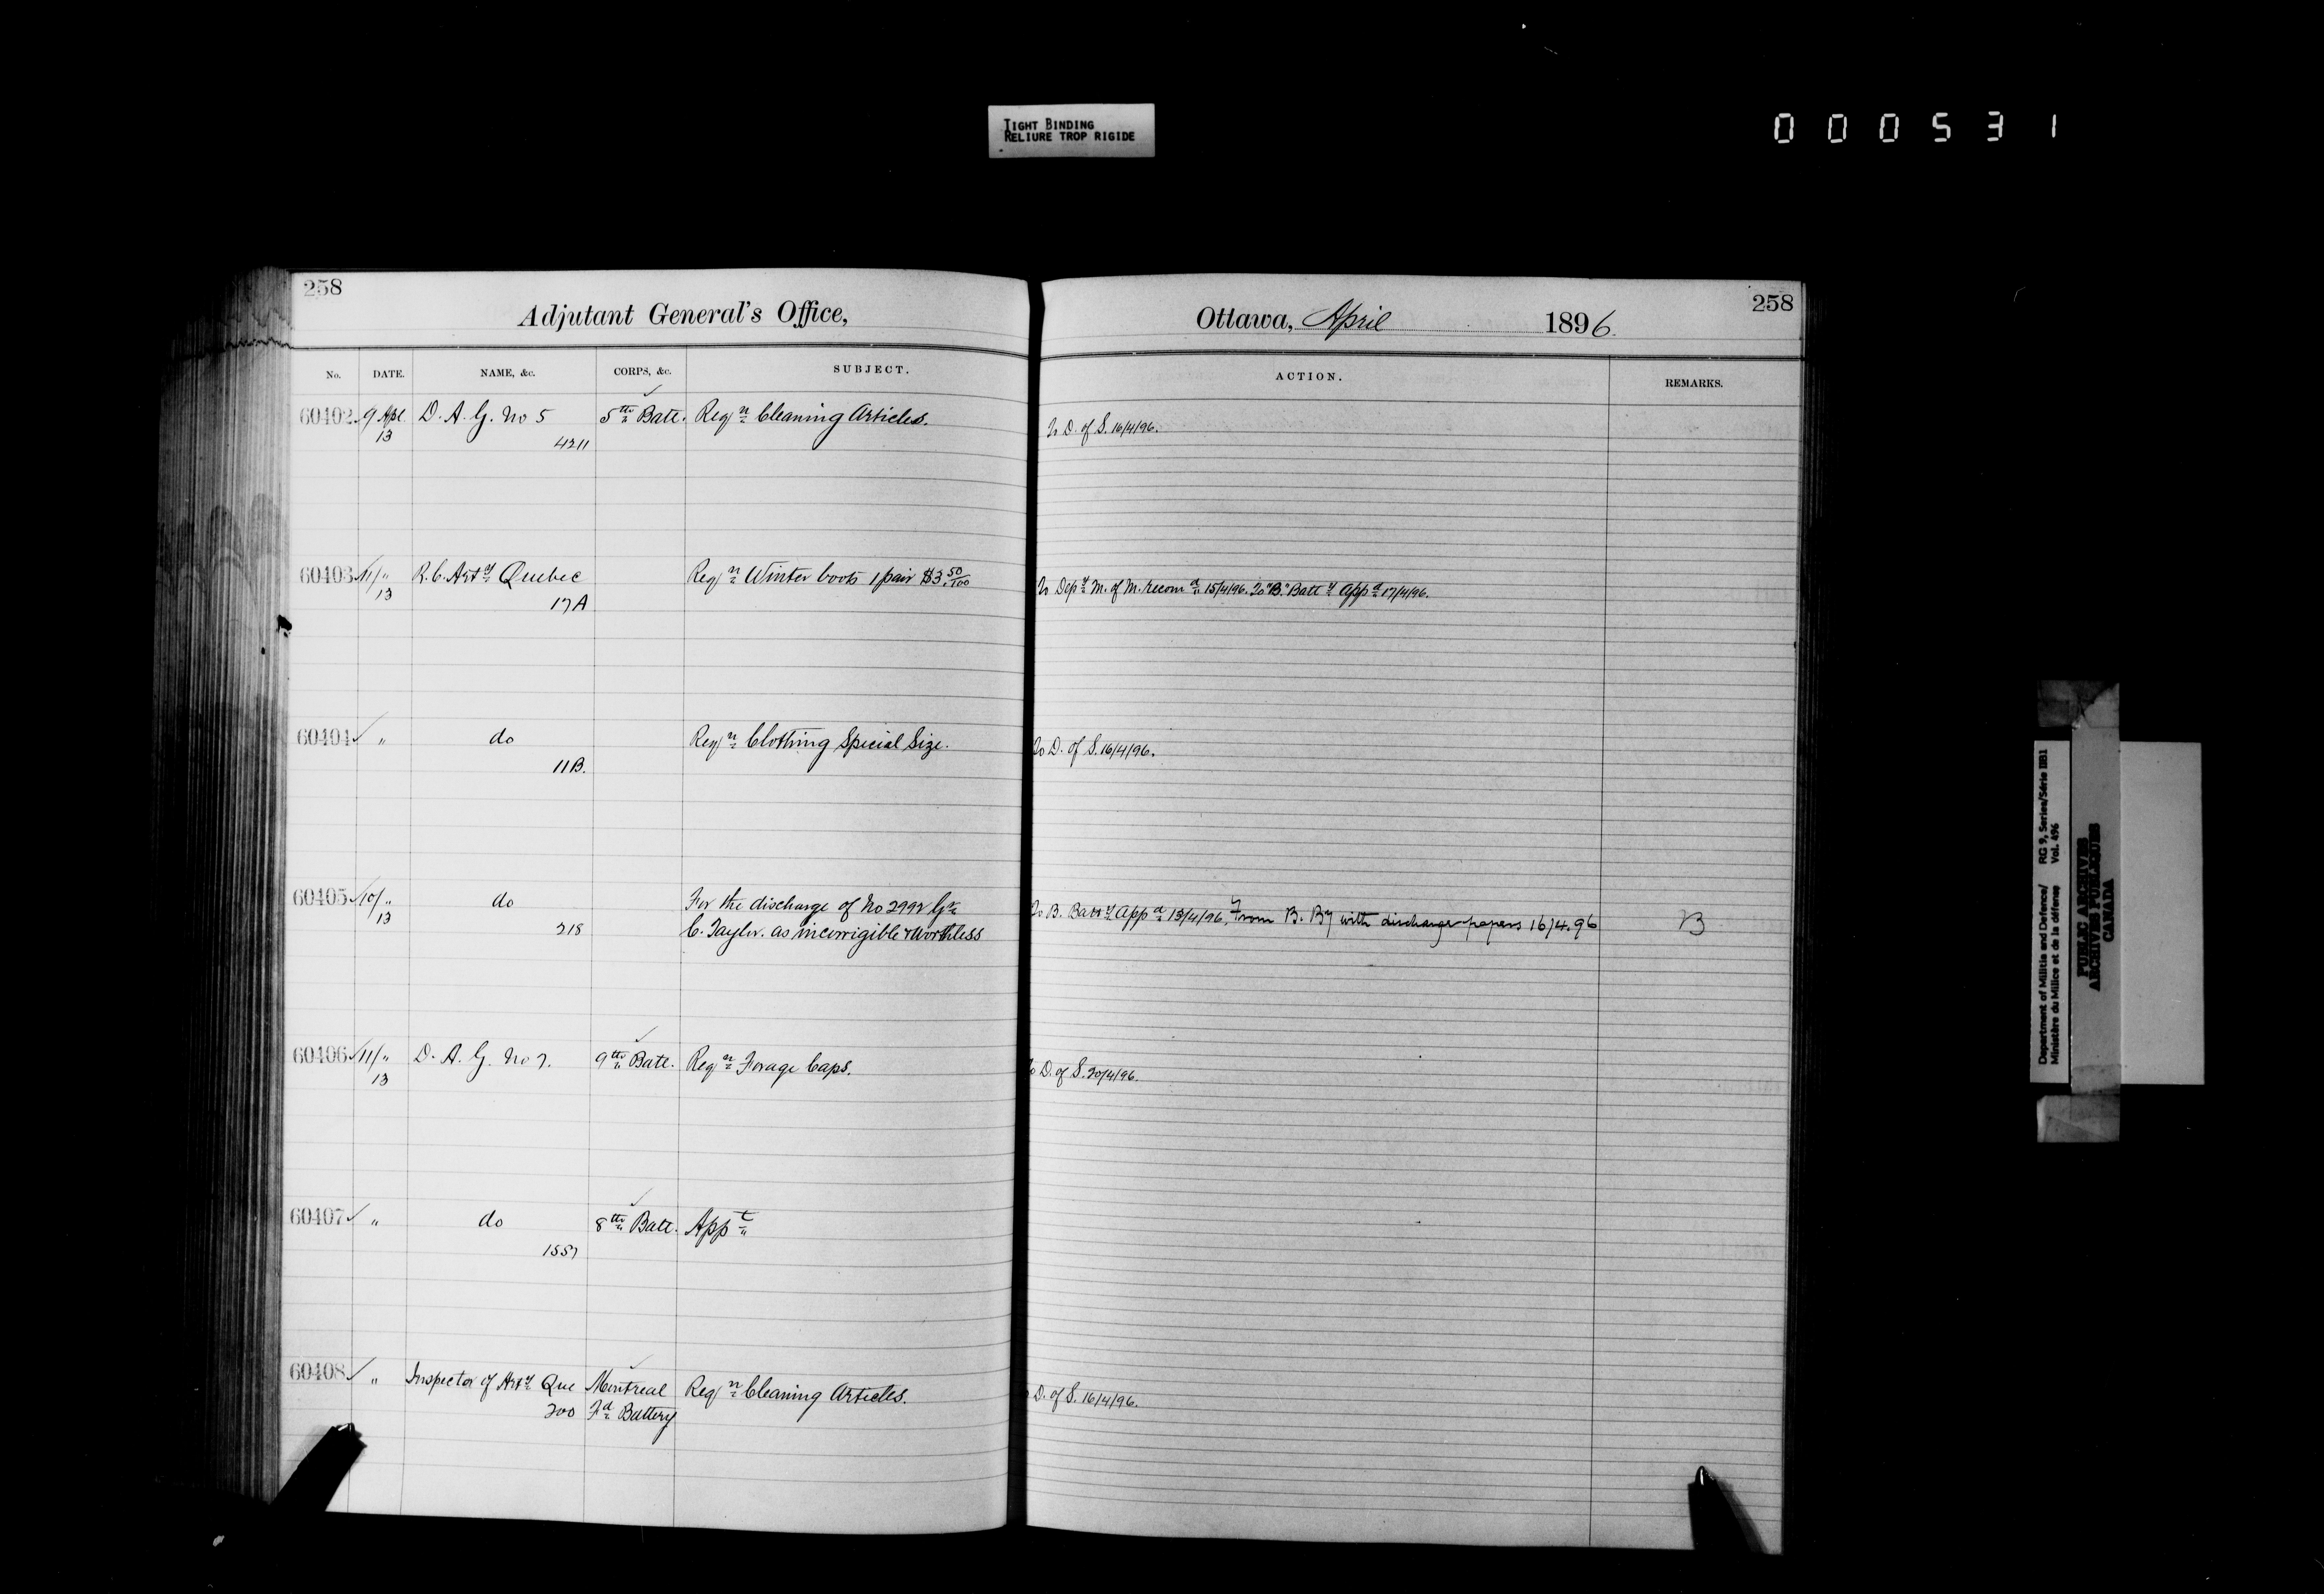 TIGHT BINDING
RELIURE TROP RIGIDE
000531
258
Adjutant General's Office,
Ottawa, April 1896.
258
No. DATE. NAME, &c. CORPS, &c. SUBJECT. ACTION. REMARKS.
60402 9 Apl. D. A. G. No 5 5th Batt. Reqn Cleaning Articles. To D. of S. 16/4/96.
13 4211
60403 11/ " R.C. Arty Quebec Reqn Winter boots 1 pair $3.50/100 To Depy M. of M. recomd 15/4/96. To "B." Batty Appd 17/4/96.
13 17A
60404 " do Reqn Clothing Special Size. To D. of S. 16/4/96.
11B.
60405 10/ " do For the discharge of No 2992 Gr To B. Batty Appd 13/4/96, From B. By with discharge papers 16/4.96 B
13 218 C. Taylor. as incorrigible & worthless
60406 11/ " D. A. G. No 7. 9th Batt. Reqn Forage Caps. To D. of S. 20/4/96.
13
60407 " do 8th Batt. Appt
1557
60408 " Inspector of Arty Que Montreal Reqn Cleaning Articles. D. of S. 16/4/96.
200 Fd Battery
Department of Militia and Defence/ RG 9, Series/Série IIB1
Ministère du Milice et de la défense Vol. 496
PUBLIC ARCHIVES
ARCHIVES PUBLIQUES
CANADA